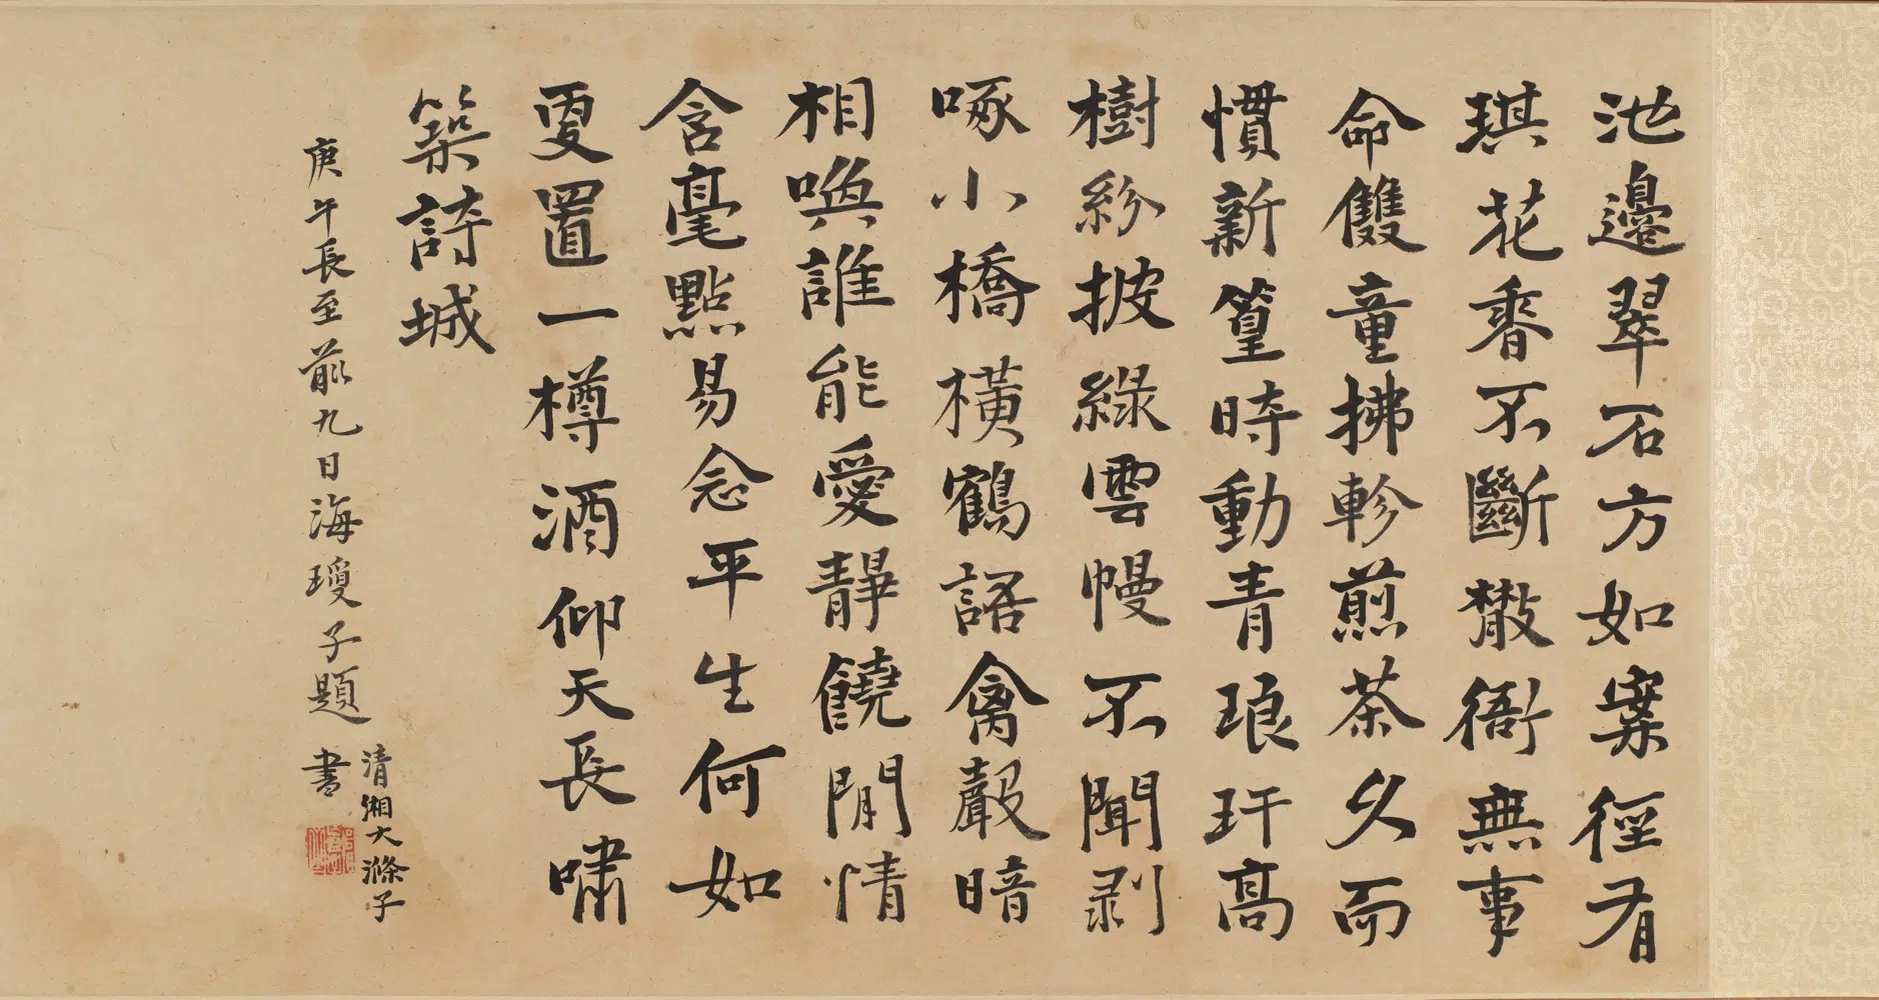 池邊翠石方如案徑有
琪花香不斷散衙無事
命雙童拂軫煎茶久而
慣新篁時動青琅玕高
樹紛披綠雲幔不聞剥
啄小橋橫鶴語禽聲暗
相喚誰能愛靜饒閒情
含毫點易念平生何如
更置一樽酒仰天長嘯
築詩城
庚午長至前九日海瓊子題
清湘大滌子
書